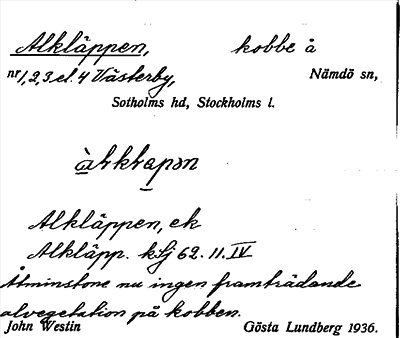 Alkläppen, kobbe å
nr 1, 2, 3 el. 4 Västerby, Nämdö sn,
Sotholms hd, Stockholms l.
Alkläppen, ek
Alkläpp. kLj 62. 11. IV
Åtminstone nu ingen framträdande
alvegetation på kobben.
John Westin Gösta Lundberg 1936.